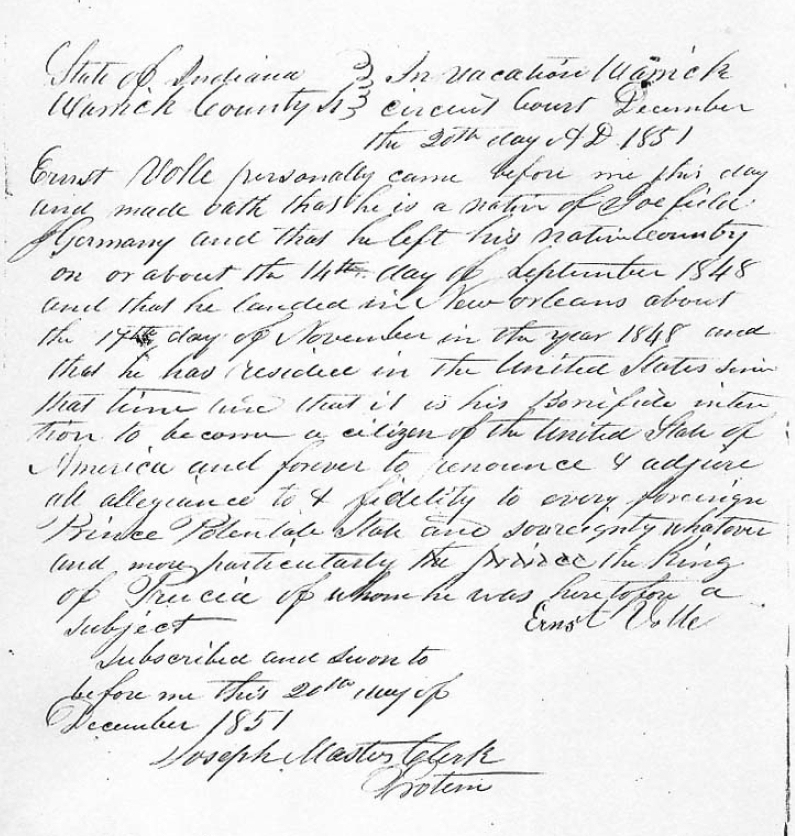 State of Indiana } In vacation Warrick
Warrick County Ss } circuit Court December
the 20th day A D 1851
Ernst Volle personally came before me this day
and made oath that he is a native of Joefield
Germany and that he left his native county
on or about the 14th day of September 1848
and that he landed in New orleans about
the 17th day of November in the year 1848 and
that he has resided in the United States since
that time and that it is his Bonifide inten
tion to become a citizen of the United State of
America and forever to renounce & adjure
all allegiance to & fidelity to every foreign
Prince Potentate State and sovereignty whatever
and more particularly the the King
of Prucia of whom he was heretofore a
subject Ernst Volle
Subscribed and sworn to
before me this 20th day of
December 1851
Joseph Masters Clerk
Protem